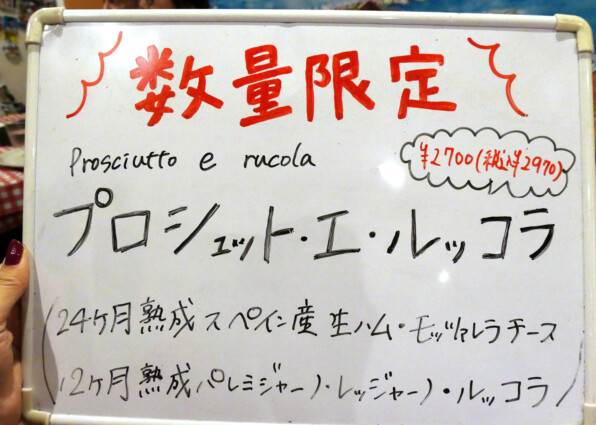 数量限定
Prosciutto e rucola
¥2700(税込¥2970)
プロシュット・エ・ルッコラ
(24ヶ月熟成スペイン産生ハム・モッツァレラチーズ
12ヶ月熟成パルミジャーノ・レッジャーノ・ルッコラ)